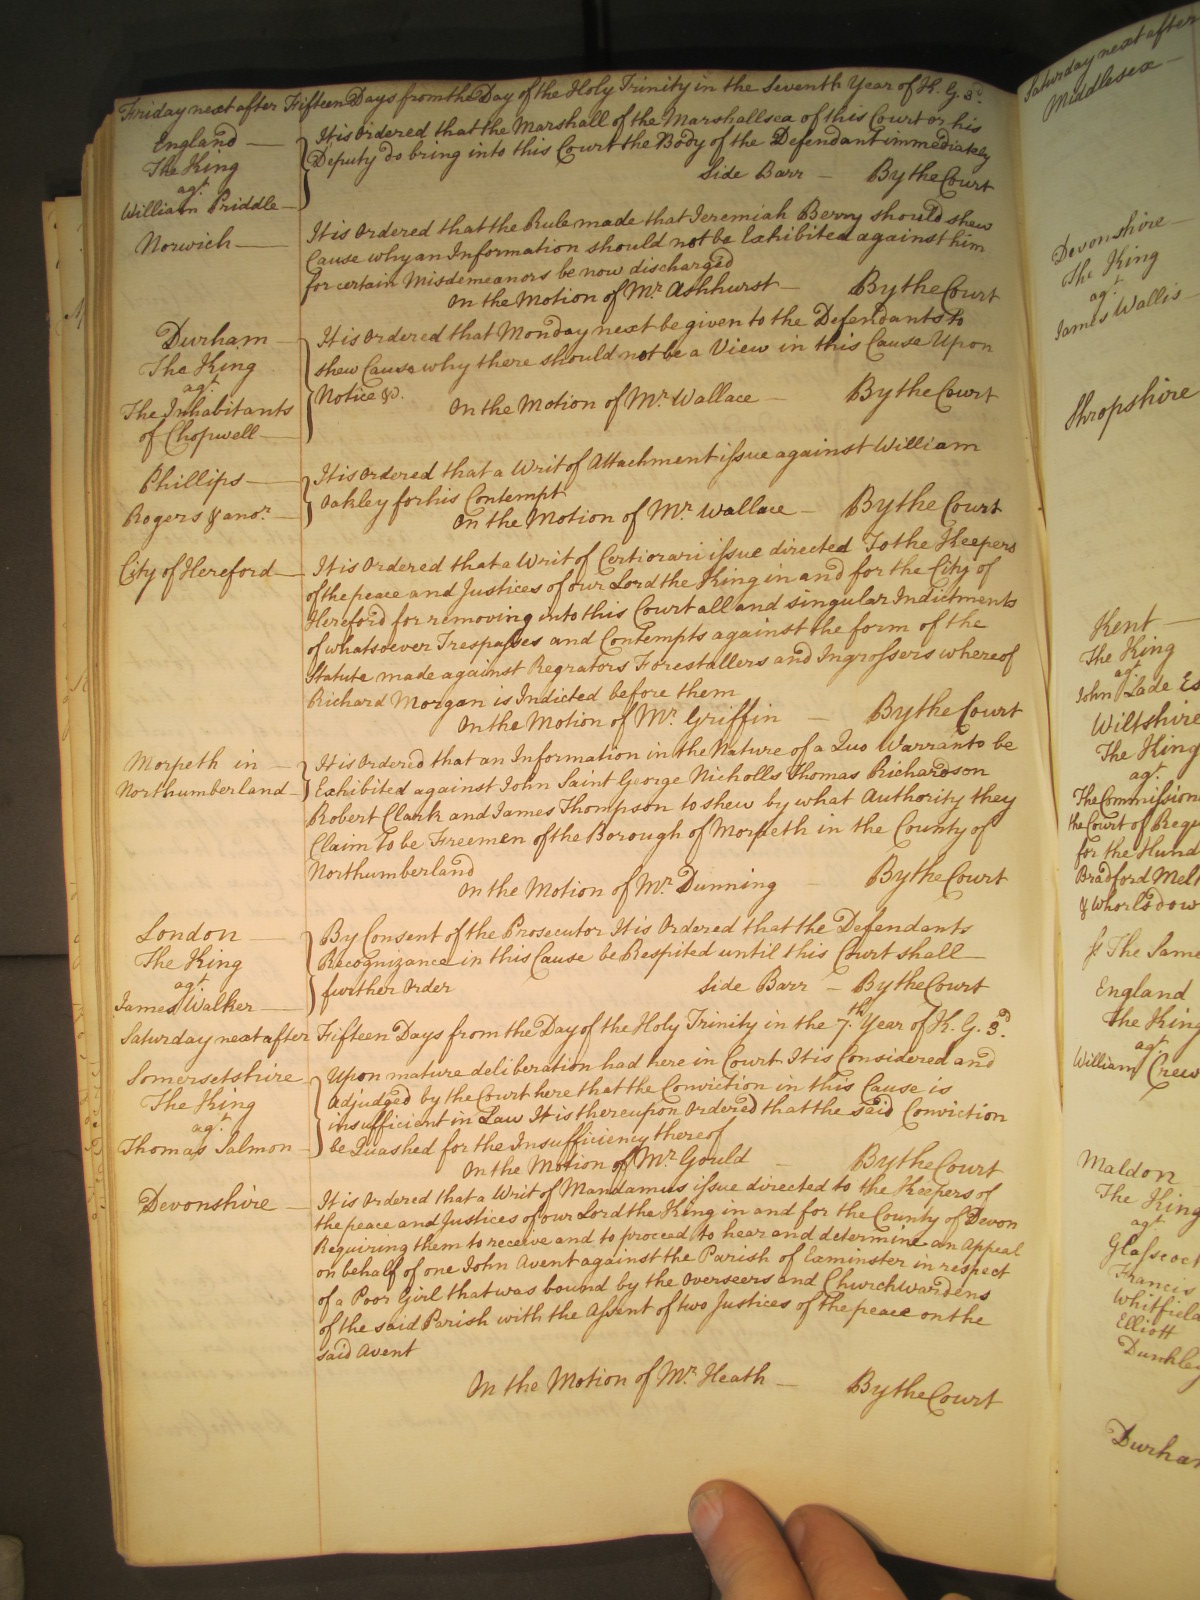 Friday next after Fifteen Days from the Day of the Holy Trinity in the Seventh Year of K. G. 3d.
England
The King
agt.
William Priddle
It is Ordered that the Marshall of the Marshallsea of this Court or his
Deputy do bring into this Court the Body of the Defendant immediately
Side Barr — By the Court
Norwich
It is Ordered that the Rule made that Jeremiah Berry should shew
Cause why an Information should not be Exhibited against him
for certain Misdemeanors be now discharged
On the Motion of Mr. Ashhurst — By the Court
Durham
The King
agt.
The Inhabitants
of Chopwell
It is Ordered that Monday next be given to the Defendants to
shew Cause why there should not be a View in this Cause Upon
Notice &c.
On the Motion of Mr. Wallace — By the Court
Phillips
Rogers & anor.
It is Ordered that a Writ of Attachment issue against William
Oakley for his Contempt
On the Motion of Mr. Wallace — By the Court
City of Hereford
It is Ordered that a Writ of Certiorari issue directed To the Keepers
of the peace and Justices of our Lord the King in and for the City of
Hereford for removing into this Court all and singular Indictments
of whatsoever Trespasses and Contempts against the form of the
Statute made against Regrators Forestallers and Ingrossers whereof
Richard Morgan is Indicted before them
On the Motion of Mr. Griffin — By the Court
Morpeth in
Northumberland
It is Ordered that an Information in the Nature of a Quo Warranto be
Exhibited against John Saint George Nicholls Thomas Richardson
Robert Clark and James Thompson to shew by what Authority they
Claim to be Freemen of the Borough of Morpeth in the County of
Northumberland
On the Motion of Mr. Dunning — By the Court
London
The King
agt.
James Walker
By Consent of the Prosecutor It is Ordered that the Defendants
Recognizance in this Cause be Respited until this Court shall
further Order
Side Barr — By the Court
Saturday next after Fifteen Days from the Day of the Holy Trinity in the 7th. Year of K. G. 3d.
Somersetshire
The King
agt.
Thomas Salmon
Upon mature deliberation had here in Court It is Considered and
Adjudged by the Court here that the Conviction in this Cause is
insufficient in Law It is thereupon Ordered that the said Conviction
be Quashed for the Insufficiency thereof
On the Motion of Mr. Gould — By the Court
Devonshire
It is Ordered that a Writ of Mandamus issue directed to the Keepers of
the peace and Justices of our Lord the King in and for the County of Devon
Requiring them to receive and to proceed to hear and determine an Appeal
on behalf of one John Avent against the Parish of Exminster in respect
of a Poor Girl that was bound by the Overseers and Churchwardens
of the said Parish with the Assent of two Justices of the peace on the
said Avent
On the Motion of Mr. Heath — By the Court
Saturday next after
Middlesex
Devonshire
The King
agt.
James Wallis
Shropshire
Kent
The King
agt.
John Lade Es
Wiltshire
The King
agt.
The Commission
the Court of Requ
for the Hund
Bradford Melk
& Whorlsdow
The Same
England
The King
agt.
William Crew
Maldon
The King
agt.
Glascock
Francis
Whitfield
Elliott
Dunkley
Durha